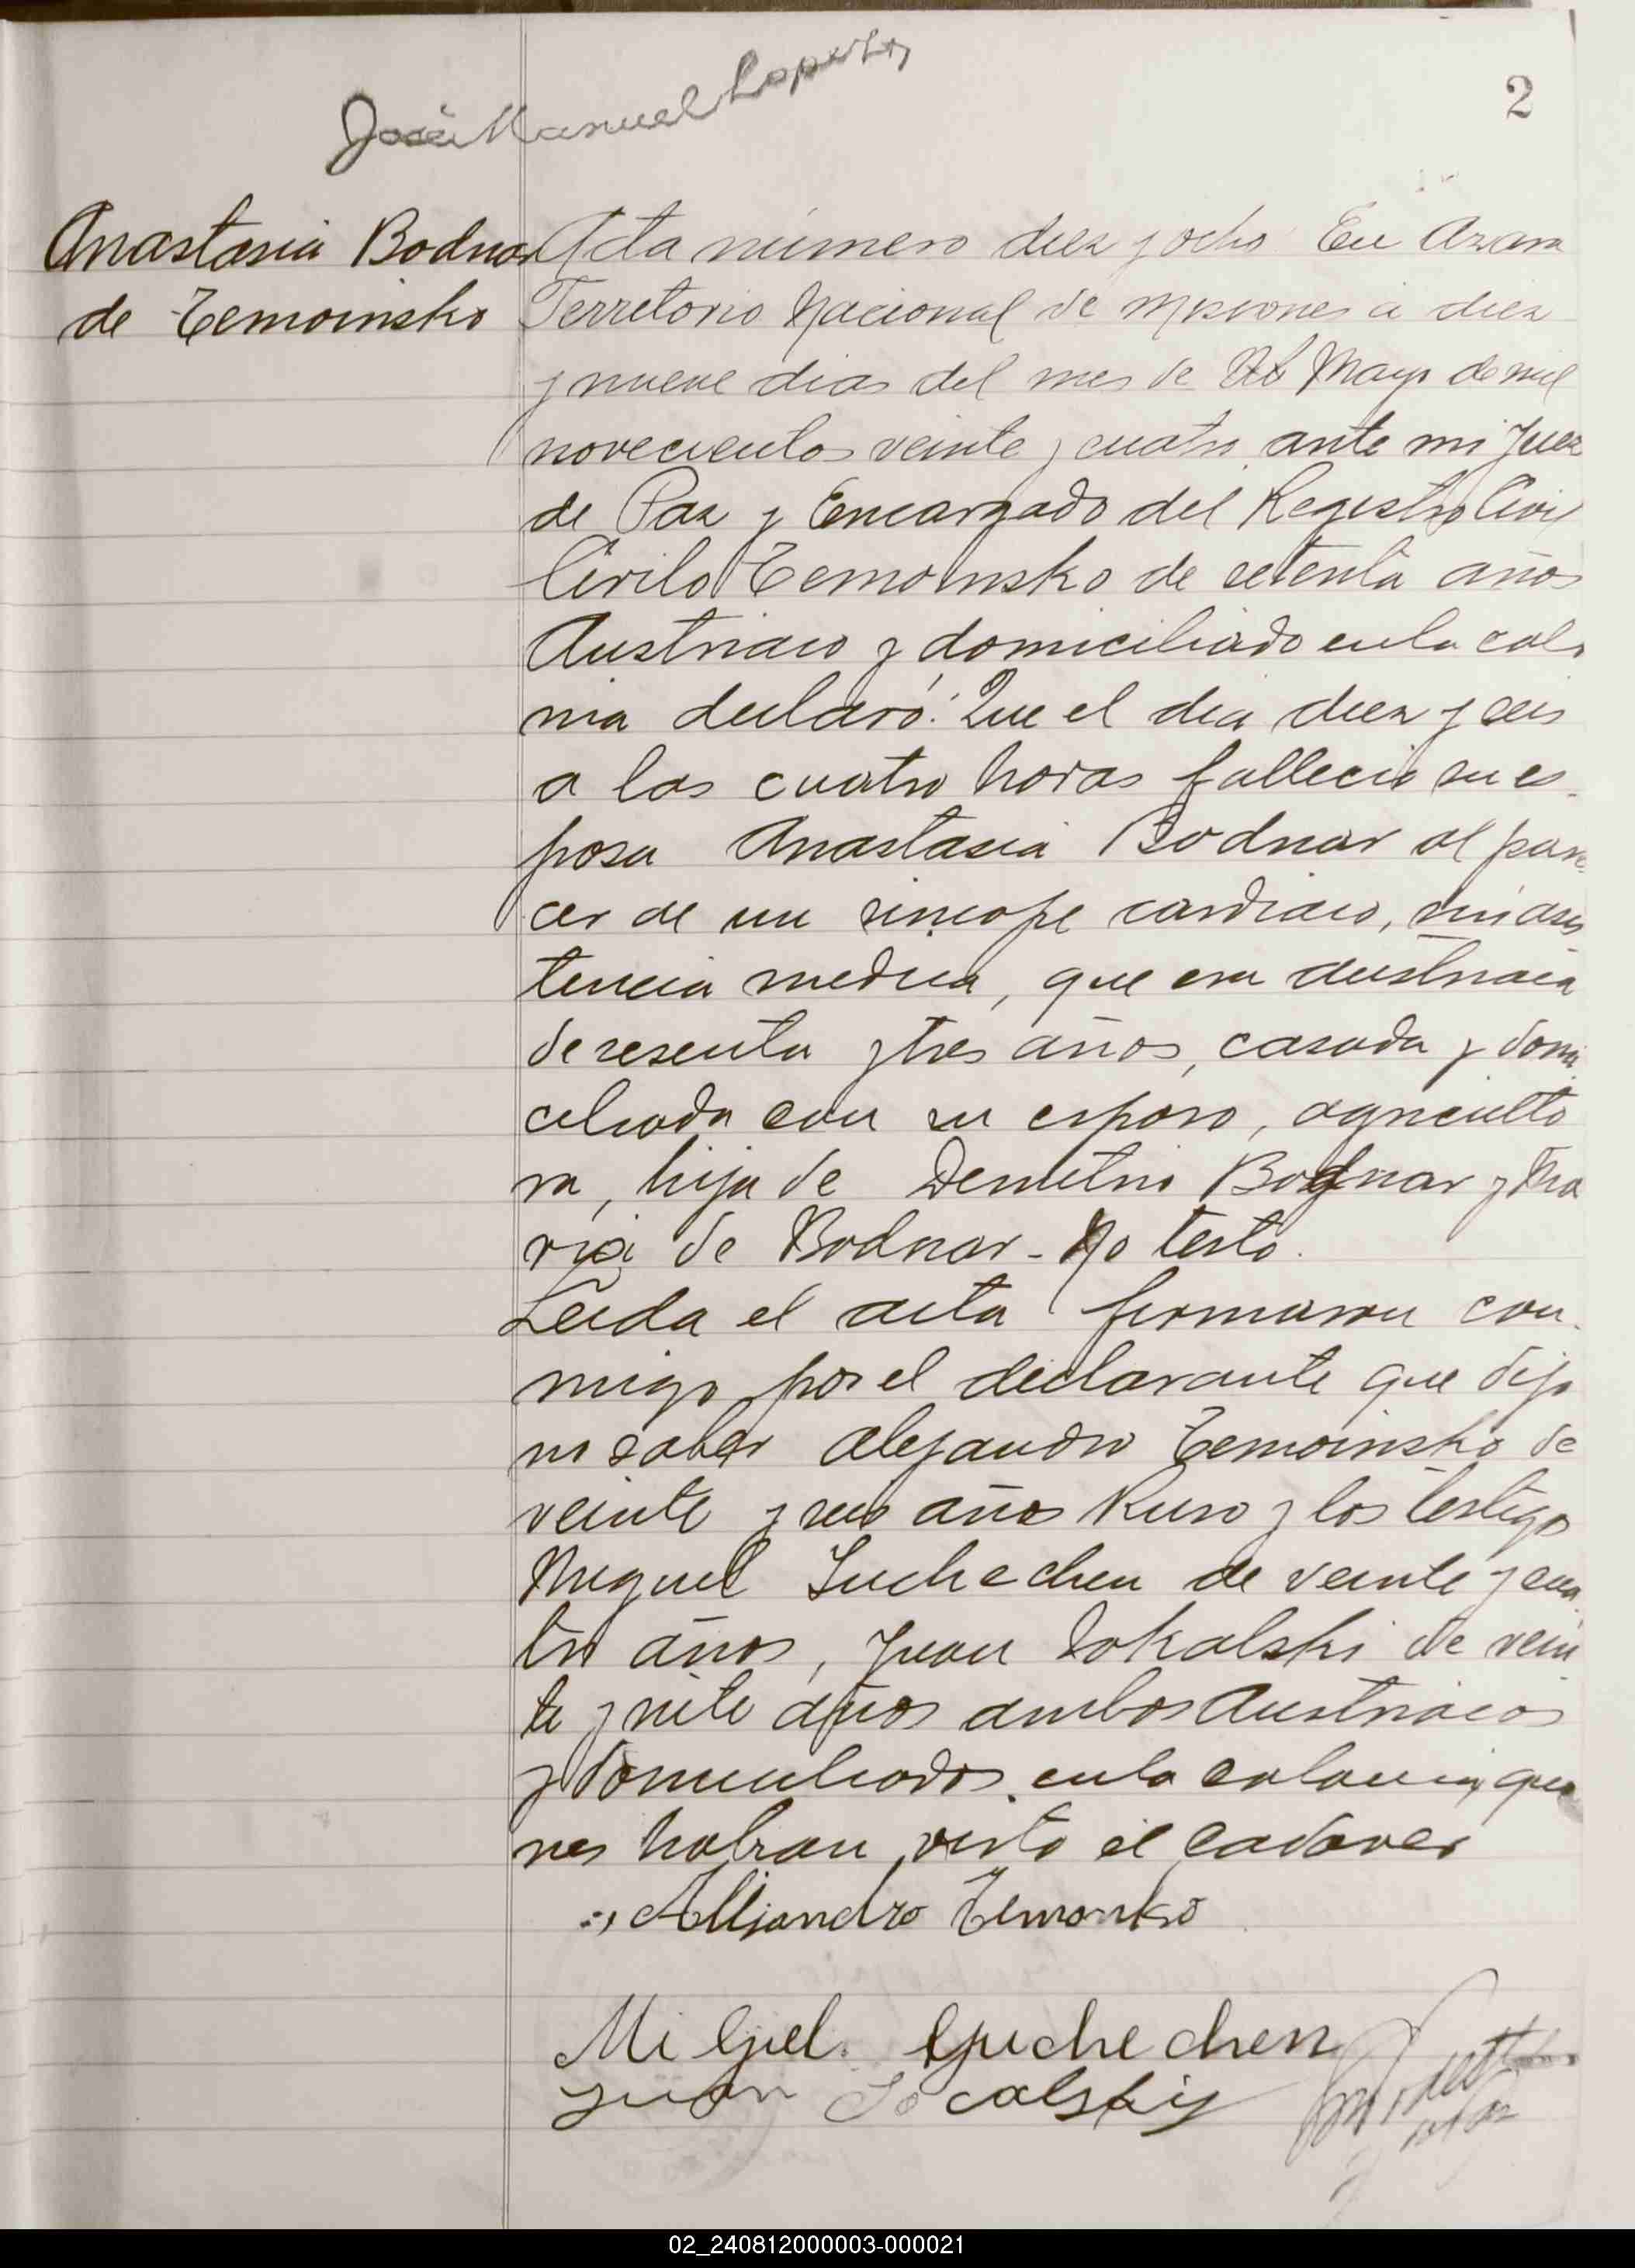 José Manuel
2
Anastasia Bodnar
de Zemoinsko
Acta número diez y ocho En Azara
Territorio Nacional de Misiones a diez
y nueve dias del mes de Ab Mayo de mil
novecientos veinte y cuatro ante mi Juez
de Paz y Encargado del Registro Civil
Cirilo Zemoinsko de setenta años
Austriaco y domiciliado en la colo
nia declaró: Que el dia diez y seis
a las cuatro horas fallecio su es-
posa Anastasia Bodnar al pare
cer de un sincope cardiaco, sin asis
tencia medica, que era austriaca
de sesenta y tres años, casada y domi
ciliada con su esposo, agriculto
ra, hija de Demetrio Bodnar y Ma
ria de Bodnar - No testo.
Leida el acta firmaron con-
migo por el declarante que dijo
no saber Alejandro Zemoinsko de
veinte y seis años Ruso y los testigos
Miguel Luchechen de veinte y cua
tro años, Juan Sokalski de vein
te y siete años ambos Austriacos
y domiciliados en la colonia, quie
nes habian visto el cadaver
Allejandro Zemonkso
Miguel Luchechen
Juan Socalskiy
02_240812000003-000021